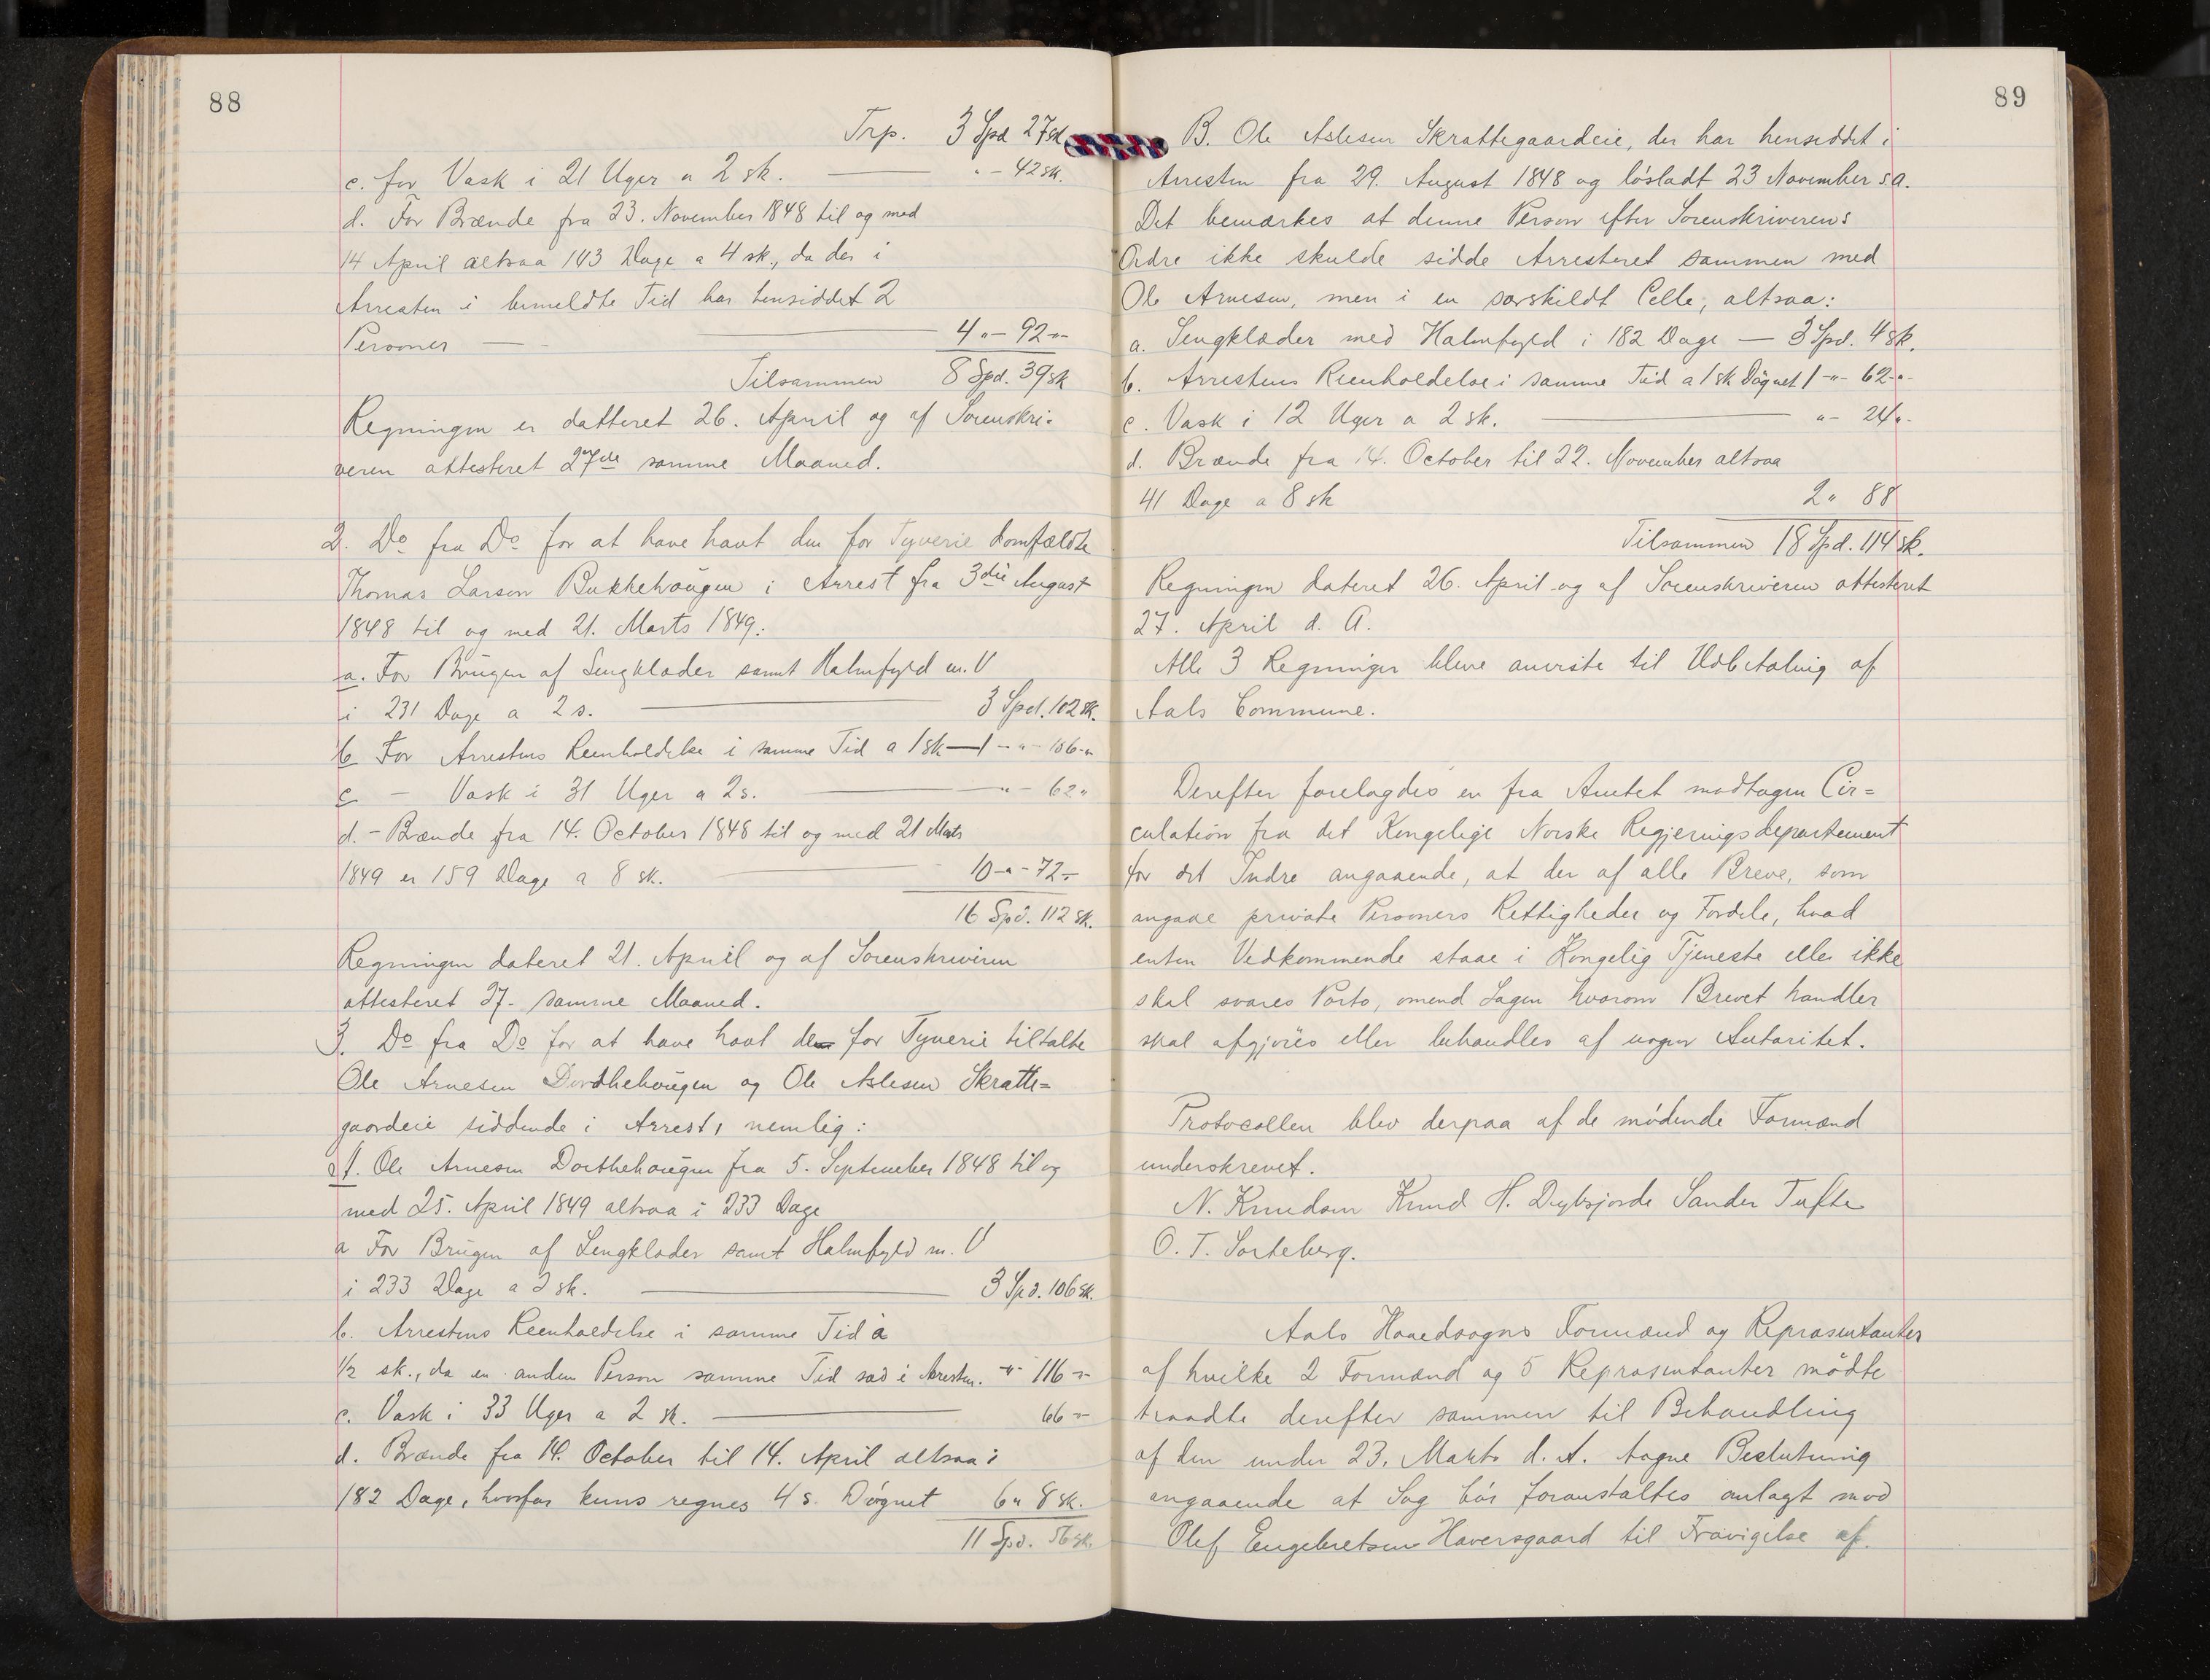 88
Trp. 3 Spd 27 sk
c. for Vask i 21 Uger a 2 sk. — " - 42 sk.
d. For Brænde fra 23. November 1848 til og med
14 April altsaa 143 Dage a 4 sk., da der i
Arresten i bemeldte Tid har hensiddet 2
Personer — 4 " - 92 - " -
Tilsammen 8 Spd. 39 sk
Regningen er datteret 26. April og af Sorenskri-
veren attesteret 27de samme Maaned.
2. Do fra Do for at have havt den for Tyverie domfældte
Thomas Larsen Bukkehaugen i Arrest fra 3die August
1848 til og med 21. Marts 1849:
a. For Brugen af Sengklæder samt Halmfyld m. V
i 231 Dage a 2 s. — 3 Spd. 102 sk.
b For Arrestens Reenholdelse i samme Tid a 1 sk — 1 - " - 156 - "
c — Vask i 31 Uger a 2 s. — " - 62 "
d. - Brænde fra 14. October 1848 til og med 21 Marts
1849 er 159 Dage a 8 sk. — 10 - " - 72 -
16 Spd. 112 sk.
Regningen dateret 21. April og af Sorenskriveren
attesteret 27. samme Maaned.
3. Do fra Do for at have havt de for Tyverie tiltalte
Ole Arnesen Dorthehougen og Ole Aslesen Skratte=
gaardeie siddende i Arrest, nemlig:
A. Ole Arnesen Dorthehougen fra 5. September 1848 til og
med 25. April 1849 altsaa i 233 Dage
a For Brugen af Sengklæder samt Halmfyld m. V
i 233 Dage a 2 sk. — 3 Spd. 106 sk.
b. Arrestens Reenholdelse i samme Tid à
1/2 sk., da en anden Person samme Tid sad i Arresten. - " - 116 - " -
c. Vask i 33 Uger a 2 sk. — 66 - " -
d. Brænde fra 14. October til 14. April altsaa i
182 Dage, hvorfor kuns regnes 4 s. Døgnet 6 " 8 sk.
11 Spd. 56 sk.
89
B. Ole Aslesen Skrattegaardeie, der har hensiddet i
Arresten fra 29. August 1848 og løsladt 23 November s. A.
Det bemærkes at denne Person efter Sorenskriverens
Ordre ikke skulde sidde Arresteret sammen med
Ole Arnesen, men i en særskildt Celle, altsaa:
a. Sengklæder med Halmfyld i 182 Dage — 3 Spd. 4 sk.
b. Arrestens Reenholdelse i samme Tid a 1 sk Døgnet 1 - " - 62 - " -
c. Vask i 12 Uger a 2 sk. — " - 24 " -
d. Brænde fra 14. October til 22. November altsaa
41 Dage a 8 sk 2 " 88
Tilsammen 18 Spd. 114 sk.
Regningen dateret 26. April og af Sorenskriveren attesteret
27. April d. A.
Alle 3 Regninger bleve anviste til Udbetaling af
Aals Commune.
Derefter forelagdes en fra Amtet modtagen Cir=
culation fra det Kongelige Norske Regjeringsdepartement
for det Indre angaaende, at der af alle Breve, som
angaae private Personers Rettigheder og Fordele, hvad
enten Vedkommende staae i Kongelig Tjeneste eller ikke
skal svares Porto, omend Sagen hvorom Brevet handler
skal afgjøres eller behandles af nogen Autoritet.
Protocollen blev derpaa af de mødende Formænd
underskrevet.
N. Knudsen Knud H. Dybsjorde Sander Tufte
O. T. Sorteberg.
Aals Hovedsogns Formænd og Repræsentanter
af hvilke 2 Formænd og 5 Repræsentanter mødte
traadte derefter sammen til Behandling
af den under 23. Marts d. A. tagne Beslutning
angaaende at Sag bør foranstaltes anlagt mod
Olef Engebretsen Haversgaard til Fravigelse af.